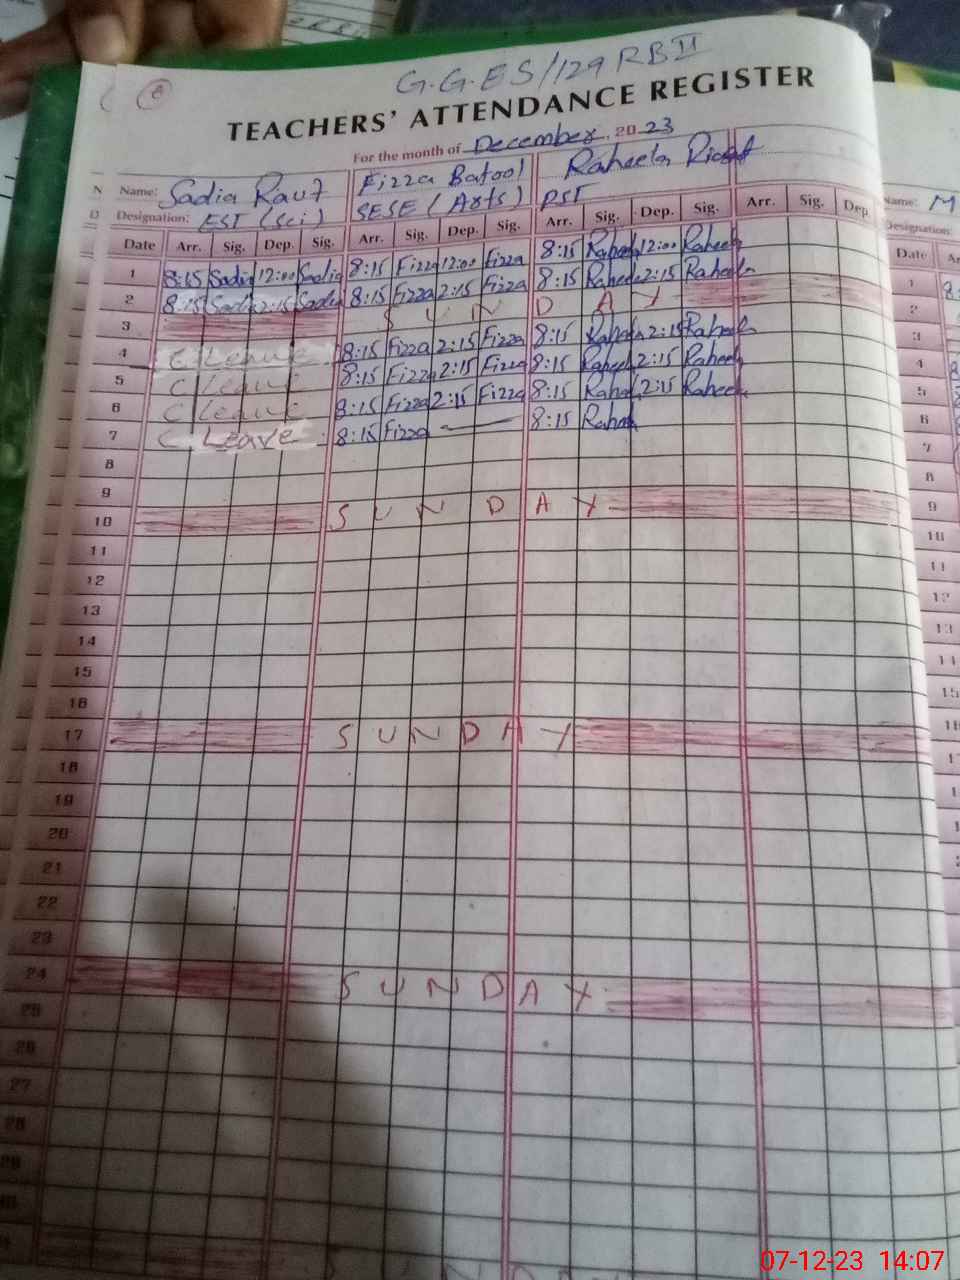 G.G.ES/129 RB II
TEACHERS' ATTENDANCE REGISTER
For the month of December 2023
Name: Sadia Rauf Fizza Batool Raheela
Designation: EST (Sci) SESE (Arts) PST
Date Arr. Sig. Dep. Sig. Arr. Sig. Dep. Sig. Arr. Sig. Dep. Sig. Arr. Sig. Dep.
1 8:15 Sadia 12:00 Sadia 8:15 Fizza 12:00 Fizza 8:15 Raheela 12:00 Raheela
2 8:15 Sadia 2:15 Sadia 8:15 Fizza 2:15 Fizza 8:15 Raheela 2:15 Raheela
3 SUNDAY
4 C Leave 8:15 Fizza 2:15 Fizza 8:15 Raheela 2:15 Raheela
5 C Leave 8:15 Fizza 2:15 Fizza 8:15 Raheela 2:15 Raheela
6 C Leave 8:15 Fizza 2:15 Fizza 8:15 Raheela 2:15 Raheela
7 C Leave 8:15 Fizza — 8:15 Raheela
8
9
10 SUNDAY
11
12
13
14
15
16
17 SUNDAY
18
19
20
21
22
23
24 SUNDAY
25
26
27
28
29
30
31 SUNDAY
Name: M
Designation:
Date Ar
1 8
2
3
4 8
5 8
6
7
8
9
10
11
12
13
14
15
07-12-23 14:07